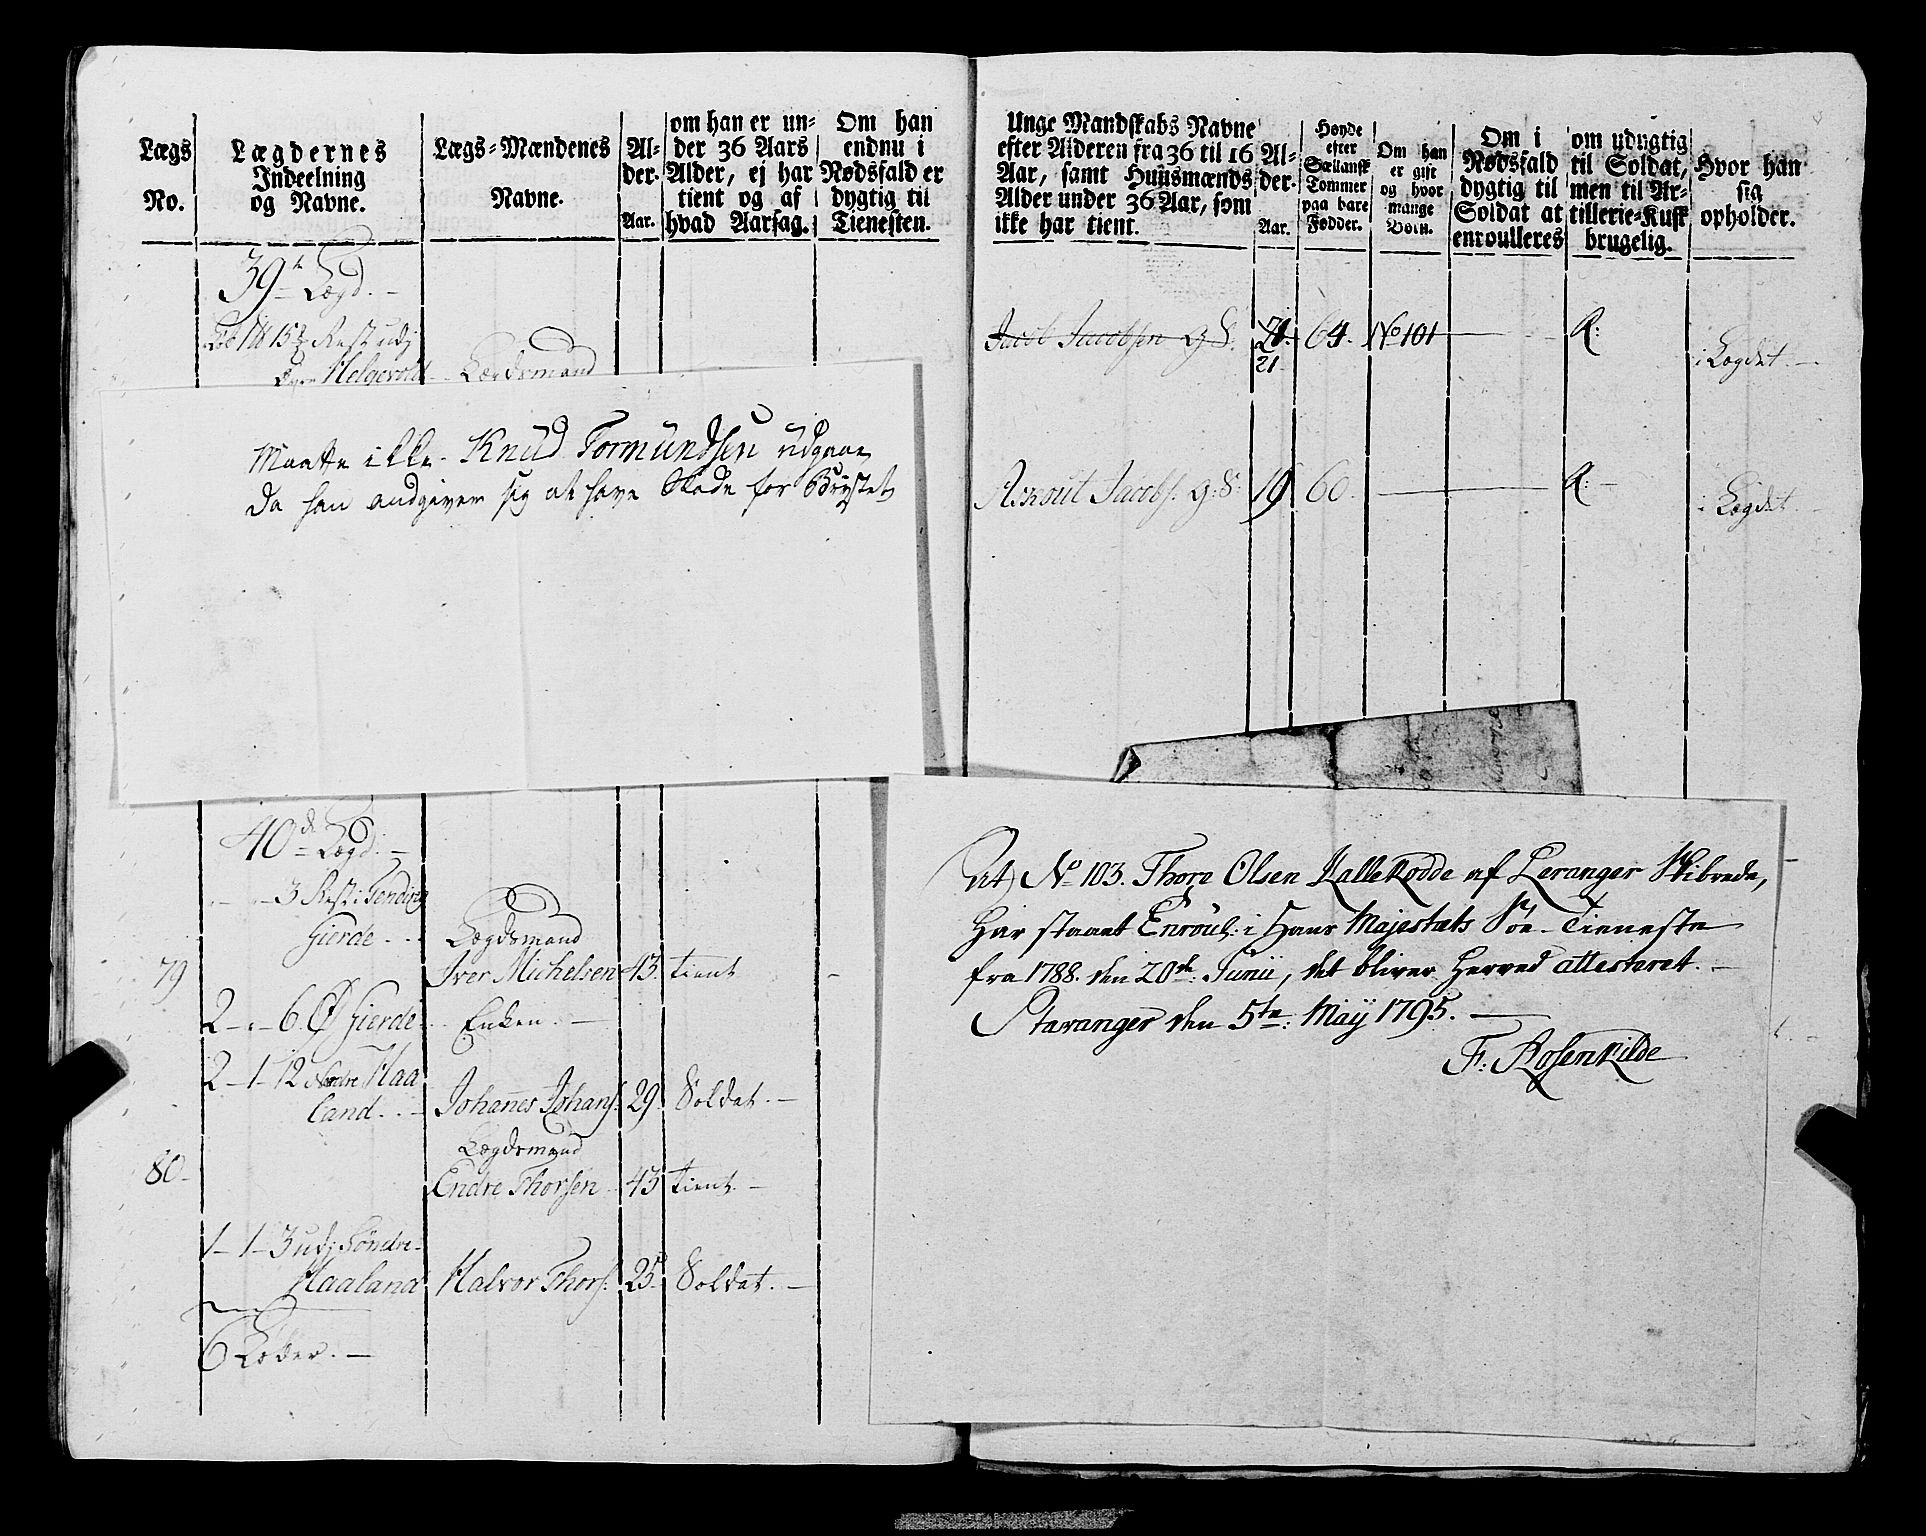 Lægs
No.
Lægdernes
Indeelning
og Navne.
Lægs-Mændenes
Navne.
Al-
der.
Aar.
om han er un-
der 36 Aars
Alder, ej har
tient og af
hvad Aarsag.
Om han
endnu i
Nødsfald er
dygtig til
Tienesten.
39te Lægd.
Rest udj
Helgevold
Lægdsmand
Maatte ikke Knud Tormundsen udgaae
da han andgiver sig at have Skade for Brystet
40de Lægd.
3 Rest i
Gierde
Lægdsmand
79
Iver Michelsen 43. tient
2 - " - 6. Ø Gierde Enken.
2 - 1 - 12 Nordre Haa
land. Johannes Johans. 29. Soldat.
Lægdsmand
80. Endre Thorsen 43 tient.
1 - 1 - 3 udj Søndre
Haaland Halvor Thors. 25. Soldat.
6 Løber.
Unge Mandskabs Navne
efter Alderen fra 36 til 16
Aar, samt Huusmænds
Alder under 36 Aar, som
ikke har tient.
Al-
der.
Aar.
Høyde
efter
Sællansk
Tommer
paa bare
Fødder.
Om han
er gift
og hvor
mange
Børn.
Om i
Nødsfald
dygtig til
Soldat at
enroulleres
om udygtig
til Soldat,
men til Ar-
tillerie-Kusk
brugelig.
Hvor han
sig
opholder.
Jacob Jacobsen g. S. 64. No 101 R:
21 i Lægdet.
Aanout Jacobs. g: S: 19 60. R: i Lægdet.
At No 103. Thore Olsen Hallekodde af Leranger Skibrede,
har staaet Enroul: i Hans Majestæts Søe-Tieneste
fra 1788. den 20de Junii, det bliver herved attesteret.
Stavanger den 5te: Maÿ 1795.
F: Rosenkilde